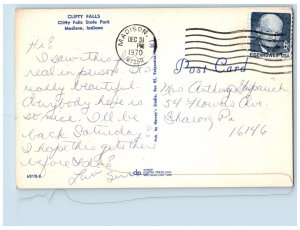 CLIFTY FALLS
Clifty Falls State Park
Madison, Indiana
MADISON, IN
DEC 31
PM
1970
47250
6c EISENHOWER·USA
Post Card
Hi!
I saw this in
real in person. It's
really beautiful.
Everybody here is
so nice. I'll be
back Saturday!
I hope this gets there
before I do!
Luv
Mrs Anthony
54 Flowers Ave.
Sharon, Pa
16146